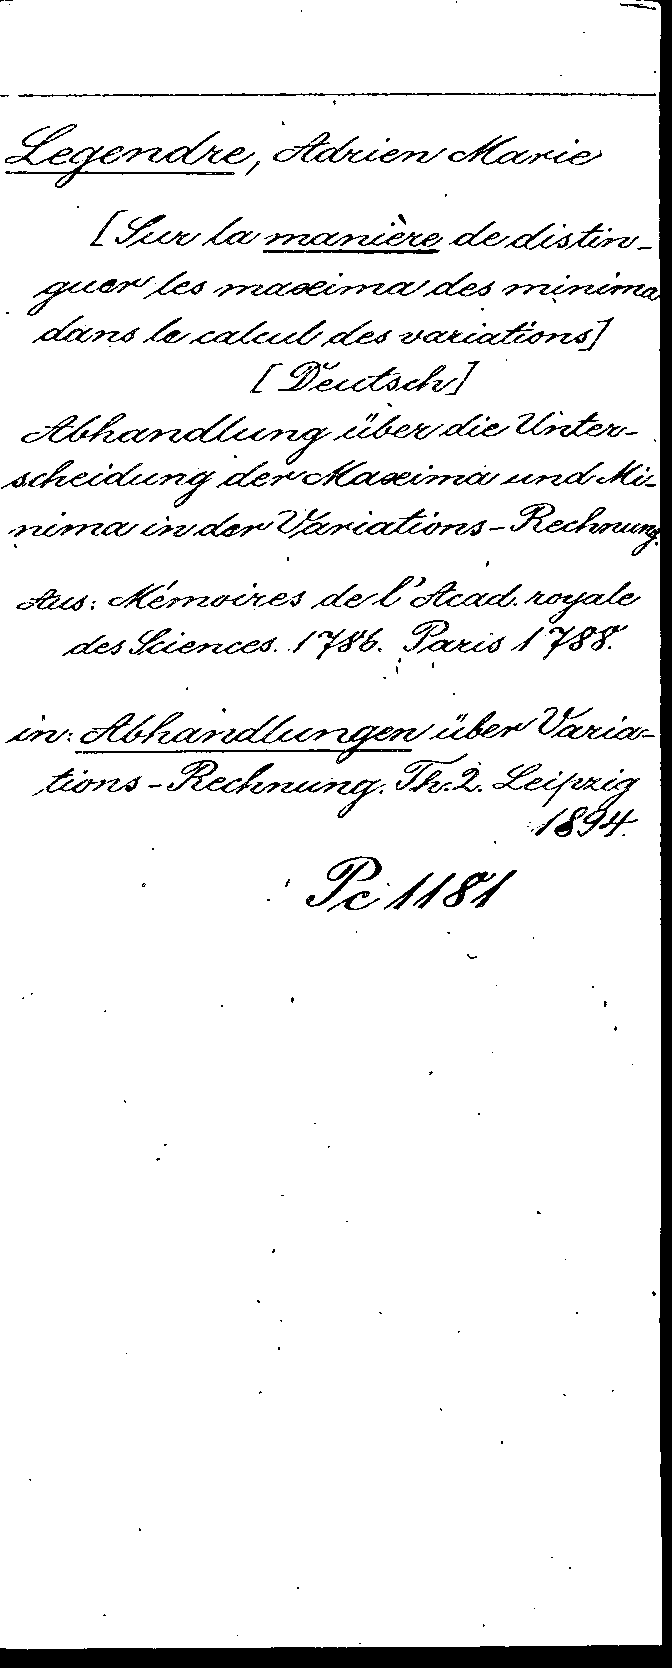 Legendre, Adrien Marie
[Sur la manière de distin-
guer les maxima des minima
dans le calcul des variations]
[Deutsch]
Abhandlung über die Unter-
scheidung der Maxima und Mi-
nima in der Variations-Rechnung.
Aus: Mémoires de l'Acad. royale
des Sciences. 1786. Paris 1788.
in: Abhandlungen über Varia-
tions-Rechnung. Th. 2. Leipzig
1894.
Pc 1181